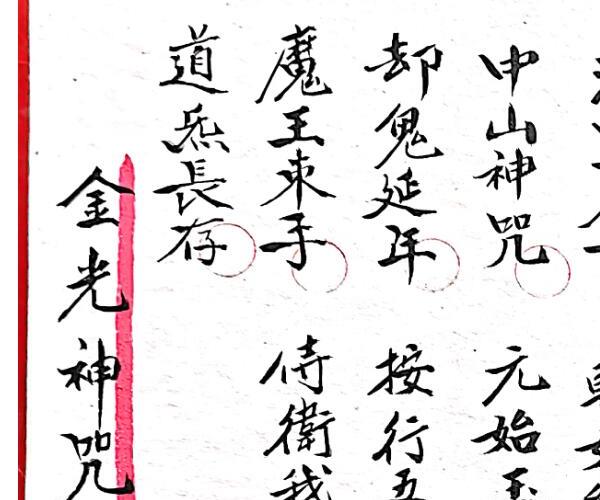 中山神咒 元始玉
却鬼延年 按行五
魔王束手 侍衛我
道炁長存
金光神咒